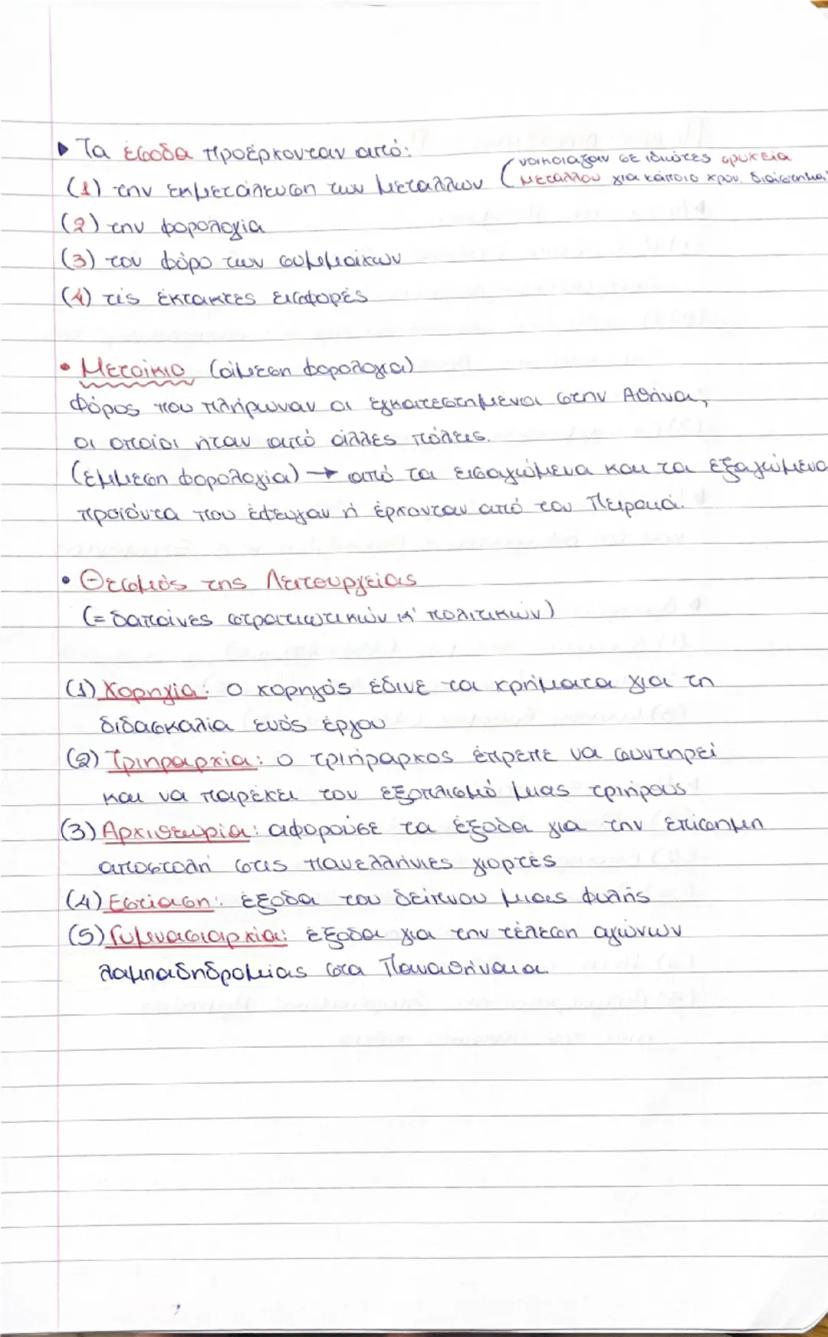 ▸ Τα έσοδα προέρχονταν από:
(1) την εκμετάλευση των μετάλλων (νοικοιαζαν σε ιδιώτες ορυχεία
μετάλλου για κάποιο χρον. διάστημα
(2) την φορολογία
(3) τον φόρο των συμμάχων
(4) τις έκτακτες εισφορές
• Μετοίκιο (άμεση φορολογία)
Φόρος που πλήρωναν οι εγκατεστημένοι στην Αθήνα,
οι οποίοι ήταν από άλλες πόλεις.
(έμμεση φορολογία) → από τα εισαγώμενα και τα εξαγώμενα
προϊόντα που έφευγαν ή έρχονταν από τον Πειραιά.
• Θεσμός της Λειτουργείας
(= δαπάνες στρατιωτικών κ' πολιτικών)
(1) Χορηγία: ο χορηγός έδινε τα χρήματα για τη
διδασκαλία ενός έργου
(2) Τριηραρχία: ο τριήραρχος έπρεπε να συντηρεί
και να παρέχει τον εξοπλισμό μιας τριήρους
(3) Αρχιθεωρία: αφορούσε τα έξοδα για την επίσημη
αποστολή στις πανελλήνιες γιορτές
(4) Εστίαση: έξοδα του δείπνου μιας φυλής
(5) Γυμνασιαρχία: έξοδα για την τέλεση αγώνων
λαμπαδηδρομίας στα Παναθήναια